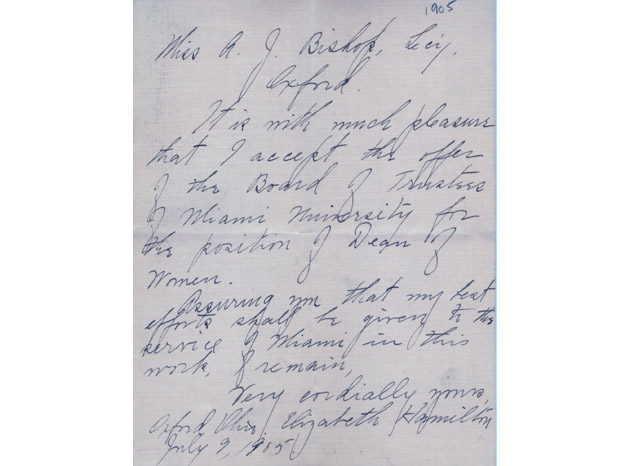 1905
Miss A. J. Bishop, Sec'y,
Oxford.
It is with much pleasure
that I accept the offer
of the Board of Trustees
of Miami University for
the position of Dean of
Women.
Assuring you that my best
efforts shall be given to the
service of Miami in this
work, I remain,
Very cordially yours,
Oxford, Ohio, Elizabeth Hamilton
July 9, 1905.